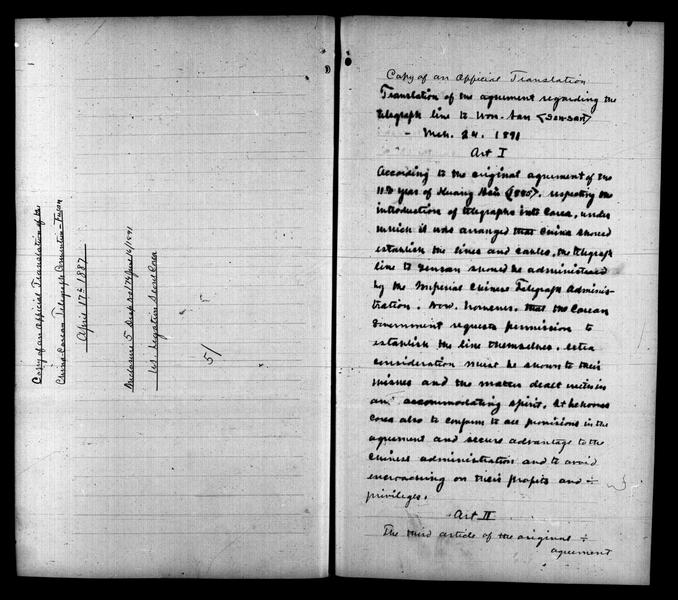 Copy of an Official Translation of the
Chino Corean Telegraph Convention - Fusan
April 17th 1887
Inclosure 5
U.S. Legation Seoul Corea
5/
Copy of an Official Translation
Translation of the agreement regarding the
telegraph line to Won-San (Gensan)
- Mch. 24. 1891
Art I
According to the original agreement of the
11th year of Kuang Hsü (1885). respecting the
introduction of telegraphs into Corea, under
which it was arranged that China should
establish the lines and cables, the telegraph
line to Gensan should be administered
by the Imperial Chinese Telegraph Adminis-
tration. Now. however. that the Corean
Government requests permission to
establish the line themselves. extra
consideration must be shown to their
wishes and the matter dealt with in
an accommodating spirit. It behooves
Corea also to conform to all provisions in the
agreement and secure advantage to the
Chinese administration and to avoid
encroaching on their profits and ÷
privileges.
Art II
The third article of the original ÷
agreement